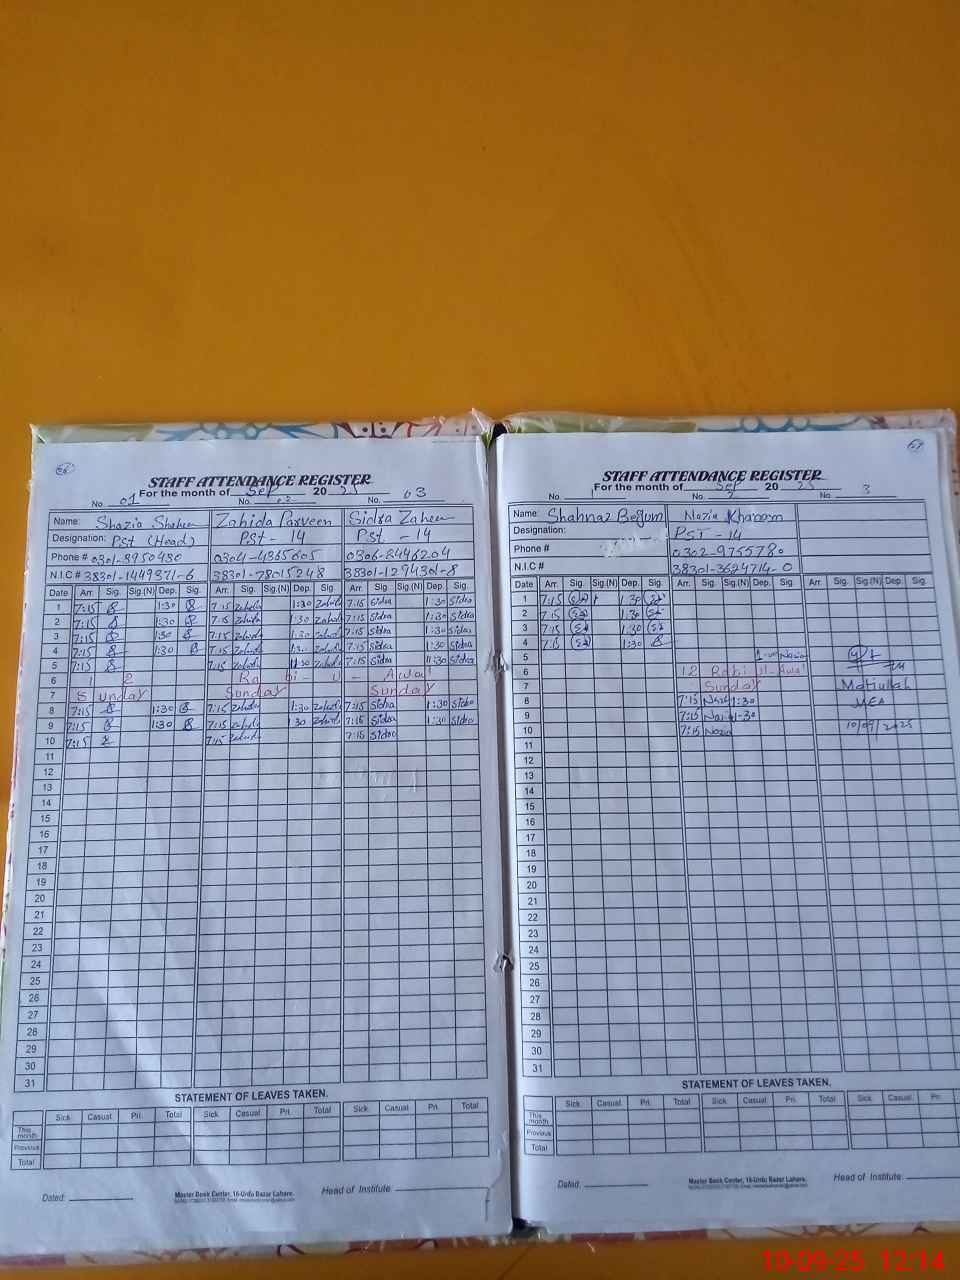 STAFF ATTENDANCE REGISTER
For the month of Sep 20 25
No. 01 No. 02 No. 03
Name: Shazia Shaheen Zahida Parveen Sidra Zaheer
Designation: PST (Head) PSt - 14 PSt - 14
Phone # 0301-8950430 0304-4865605 0306-8446204
N.I.C # 38301-1449371-6 38301-78015248 38301-1294301-8
Date Arr. Sig. Sig.(N) Dep. Sig. Arr. Sig. Sig.(N) Dep. Sig. Arr. Sig. Sig.(N) Dep. Sig.
1 7:15 1:30 7:15 Zahida 1:30 Zahida 7:15 Sidra 1:30 Sidra
2 7:15 1:30 7:15 Zahida 1:30 Zahida 7:15 Sidra 1:30 Sidra
3 7:15 1:30 7:15 Zahida 1:30 Zahida 7:15 Sidra 1:30 Sidra
4 7:15 1:30 7:15 Zahida 1:30 Zahida 7:15 Sidra 1:30 Sidra
5 7:15 7:15 Zahida 11:30 Zahida 7:15 Sidra 11:30 Sidra
6 12 Rabi - U - Awal
7 Sunday Sunday Sunday
8 7:15 1:30 7:15 Zahida 1:30 Zahida 7:15 Sidra 1:30 Sidra
9 7:15 1:30 7:15 Zahida 1:30 Zahida 7:15 Sidra 1:30 Sidra
10 7:15 7:15 Zahida 7:15 Sidra
11
12
13
14
15
16
17
18
19
20
21
22
23
24
25
26
27
28
29
30
31
STATEMENT OF LEAVES TAKEN.
Sick. Casual. Pri. Total Sick. Casual. Pri. Total Sick. Casual. Pri. Total
This month
Previous
Total
Dated: Master Book Center, 16-Urdu Bazar Lahore. Head of Institute:
STAFF ATTENDANCE REGISTER
For the month of Sep 20 25
No. 1 No. 2 No. 3
Name: Shahnaz Begum Nazia Khanam
Designation: PST - 14
Phone # 0302-9755780
N.I.C # 38301-3624714-0
Date Arr. Sig. Sig.(N) Dep. Sig. Arr. Sig. Sig.(N) Dep. Sig. Arr. Sig. Sig.(N) Dep. Sig.
1 7:15 1:30
2 7:15 1:30
3 7:15 1:30
4 7:15 1:30
5 Nazia
6 12 Rabi-ul-Awal
7 Sunday Matiullah
8 7:15 Nazia 1:30 MEA
9 7:15 Nazia 1-30
10 7:15 Nazia 10/09/2025
11
12
13
14
15
16
17
18
19
20
21
22
23
24
25
26
27
28
29
30
31
STATEMENT OF LEAVES TAKEN.
Sick. Casual. Pri. Total Sick. Casual. Pri. Total Sick. Casual. Pri.
This month
Previous
Total
Dated: Master Book Center, 16-Urdu Bazar Lahore. Head of Institute:
10-09-25 12:14